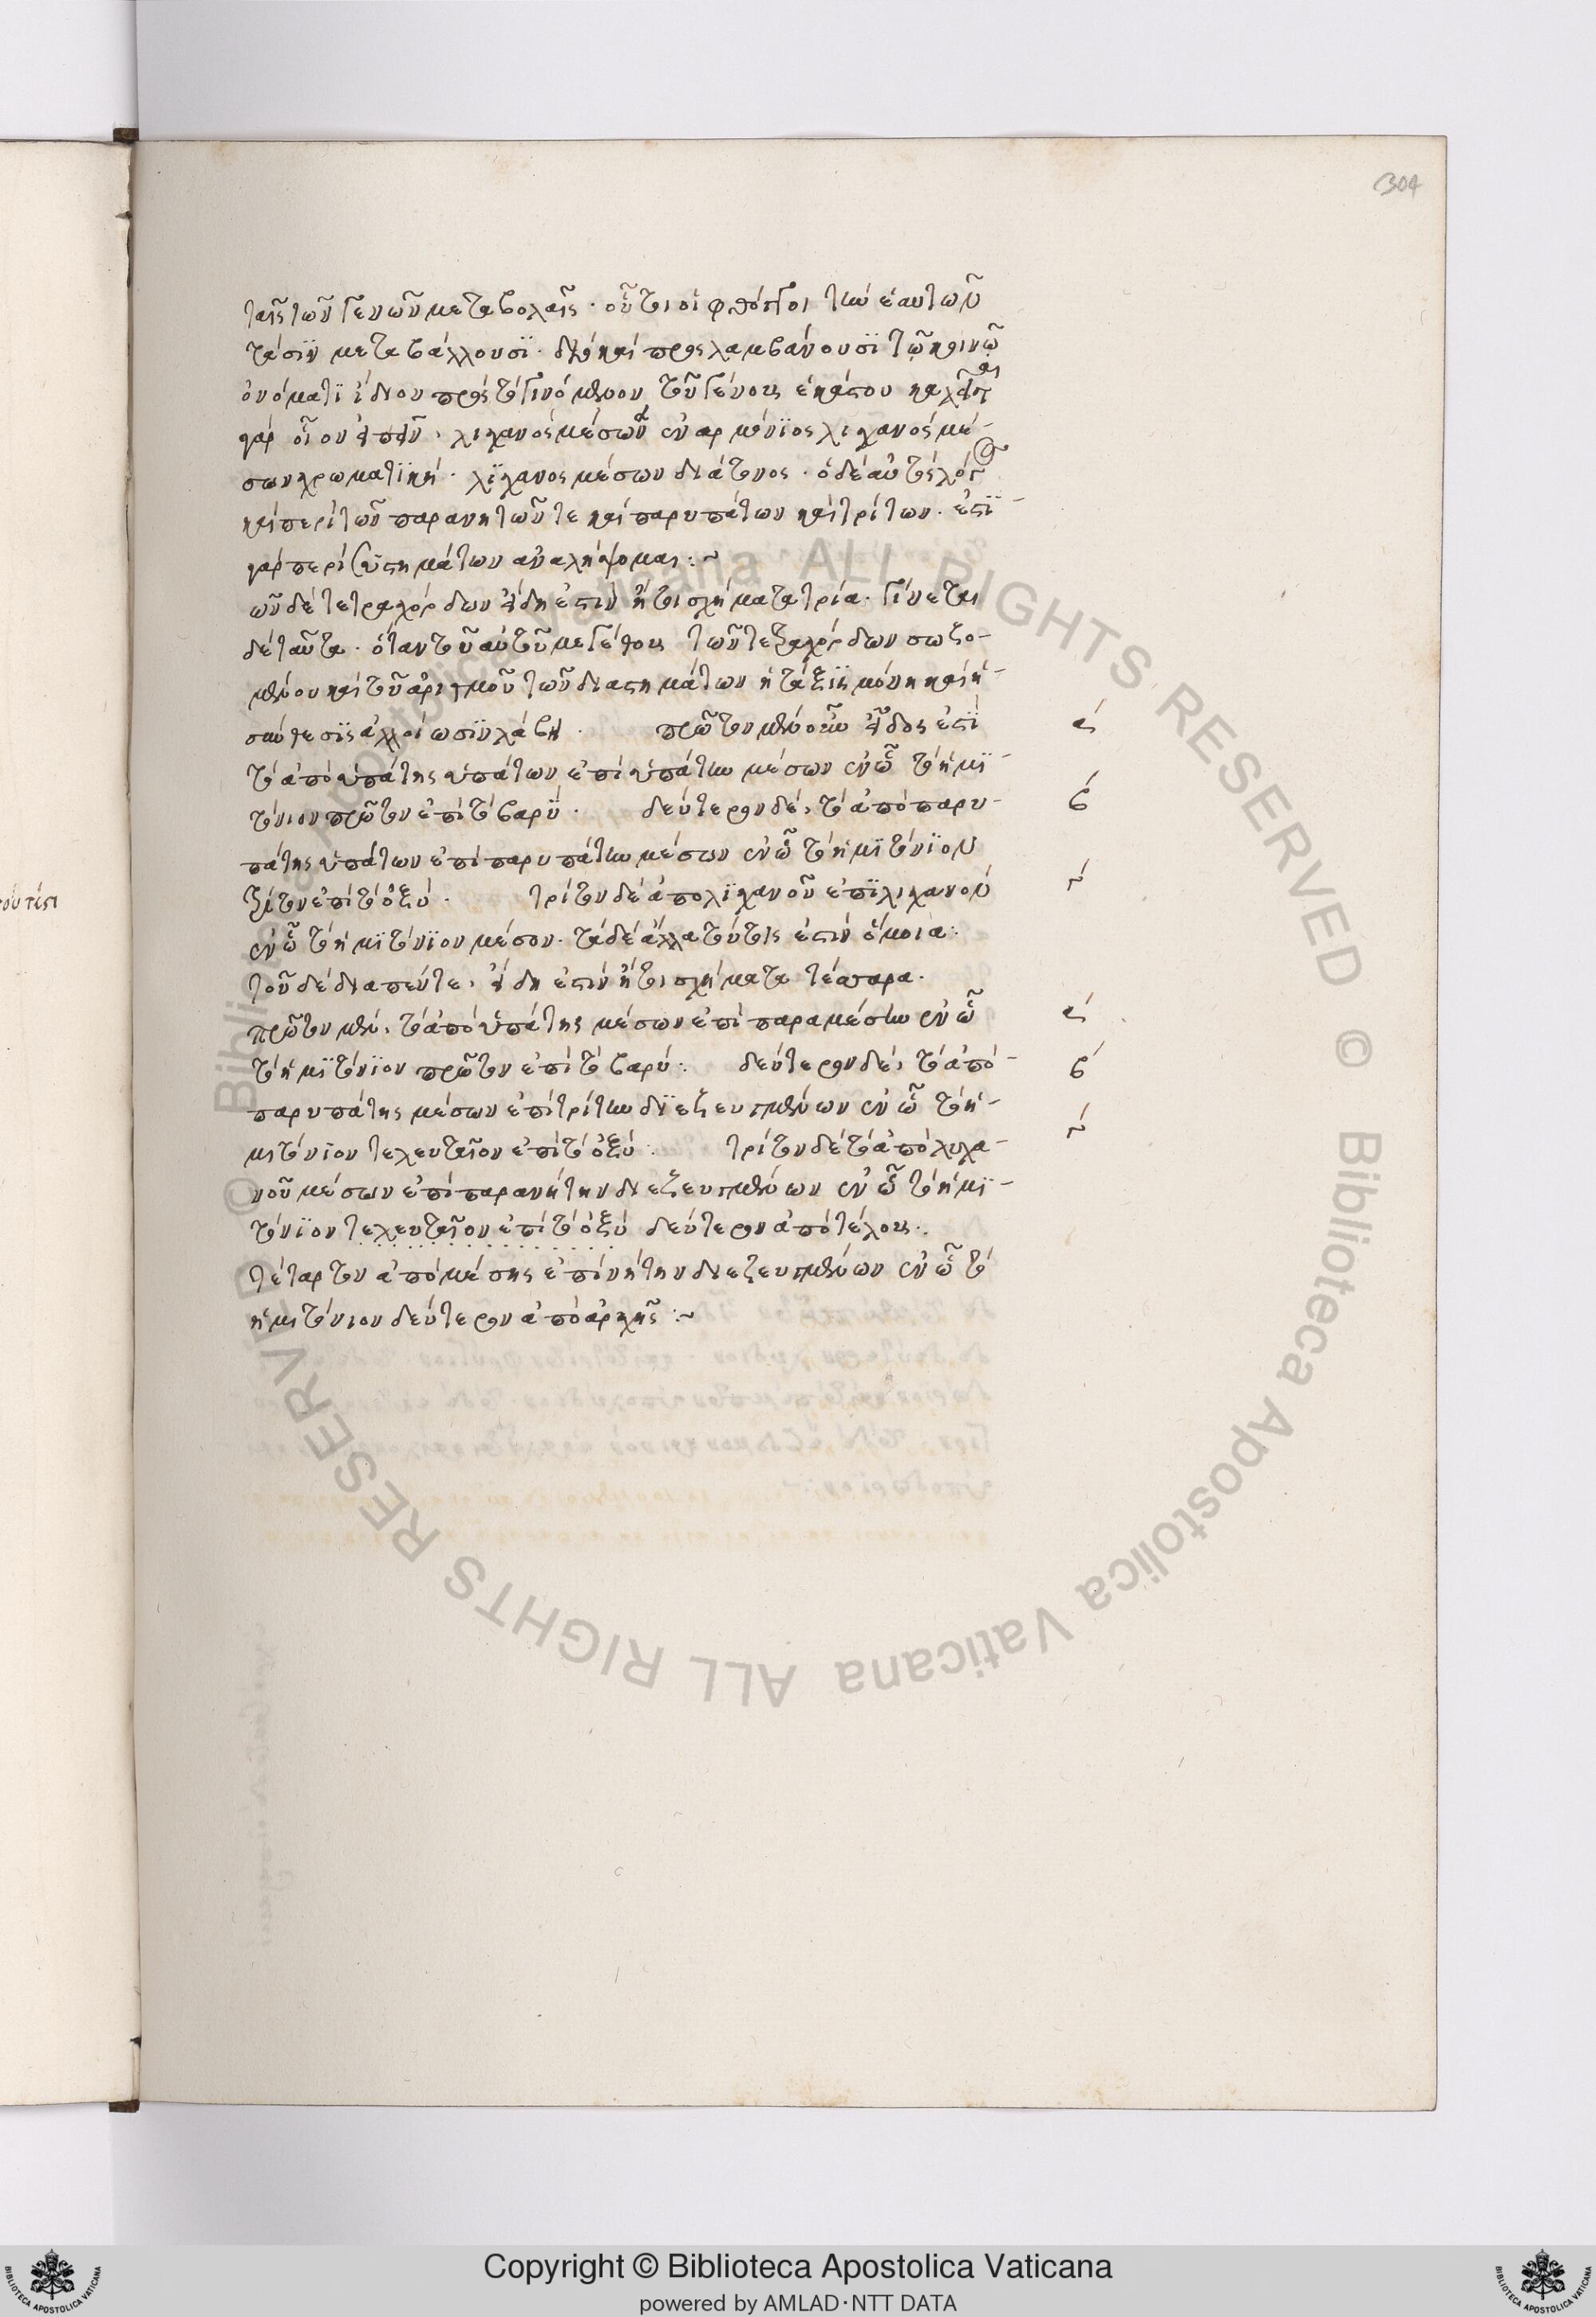 304
ταῖς τῶν γενῶν μεταβολαῖς · οὗτοι οἱ φθόγγοι τὴν ἑαυτῶν
τάσϊν μεταβάλλουσϊ · διὸ καὶ προσλαμβάνουσϊ τῷ κοινῷ
ὀνόματϊ ἴδιον πρὸς τὸ γινόμενον τοῦ γένους ἑκάστου καλεῖται
γὰρ οἷον εἰπεῖν · λιχανὸς μέσων ἐναρμόνϊος λιχανὸς μέ-
σων χρωματϊκή · λϊχανος μέσων διάτονος · ὁ δὲ αὐτὸς λόγος
καὶ περὶ τῶν παρανητῶν τε καὶ παρυπάτων καὶ τρίτων · ἐπϊ-
γὰρ περὶ συστημάτων ἀναλήψομαι :~
ὧν δὲ τετραχόρδων εἴδη ἐστὶν ἤτοι σχήματα τρία · γίνεται
δὲ ταῦτα · ὅταν τοῦ αὐτοῦ μεγέθους τῶν τετραχόρδων σωζο-
μένου καὶ τοῦ ἀριθμοῦ τῶν διαστημάτων ἡ τάξϊς μόνη καὶ ἡ-
σύνθεσϊς ἀλλοίωσϊν λάβη · πρῶτον μὲν οὖν εἶδος ἐστϊ
τὸ ἀπὸ ὑπάτης ὑπάτων ἐπὶ ὑπάτην μέσων ἐν ᾧ τὸ ἡμϊ-
τόνιον πρῶτον ἐπὶ τὸ βαρϋ · δεύτερον δὲ, τὸ ἀπὸ παρυ-
πάτης ὑπάτων ἐπὶ παρυπάτην μέσων ἐν ᾧ τὸ ἡμϊτόνϊον
τρίτον ἐπὶ τὸ ὀξύ · τρίτον δὲ ἀπο λϊχανοῦ ἐπϊ λιχανὸν
ἐν ᾧ τὸ ἡμϊτόνϊον μέσον · τὰ δὲ ἄλλα τούτοις ἐστὶν ὅμοια :
τοῦ δὲ δια πέντε, εἴδη ἐστὶν ἤτοι σχήματα τέσσαρα ·
πρῶτον μὲν · τὸ ἀπὸ ὑπάτης μέσων ἐπὶ παραμέσην ἐν ᾧ
τὸ ἡμϊτόνϊον πρῶτον ἐπὶ τὸ βαρύ : δεύτερον δὲ, τὸ ἀπὸ-
παρυπάτης μέσων ἐπὶ τρίτην δϊεζευγμένων ἐν ᾧ τὸ ἡ-
μιτόνϊον τελευταῖον ἐπὶ τὸ ὀξύ · τρίτον δὲ τὸ ἀπὸ λυχα-
νοῦ μέσων ἐπὶ παρανήτην διεζευγμένων ἐν ᾧ τὸ ἡμϊ-
τόνϊον τελευταῖον ἐπὶ τὸ ὀξύ δεύτερον ἀπὸ τέλους ·
τέταρτον ἀπὸ μέσης ἐπὶ νήτην διεζευγμένων ἐν ᾧ τὸ
ἡμιτόνιον δεύτερον ἀπὸ ἀρχῆς :~
α
β
γ
α
β
γ
Copyright © Biblioteca Apostolica Vaticana
powered by AMLAD·NTT DATA
© Biblioteca Apostolica Vaticana ALL RIGHTS RESERVED © Biblioteca Apostolica Vaticana ALL RIGHTS RESERVED